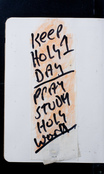 KEEP
HOLY 1
DAY
PRAY
STUDY
HOLY
WORD